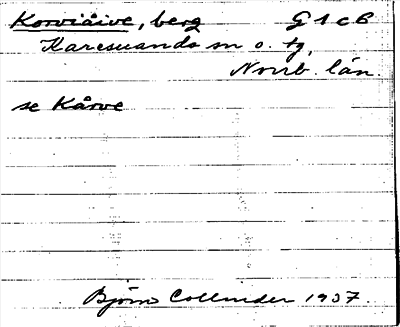 Korviåive, berg G 1 c B
Karesuando sn o. tg,
Norrb. län.
se Kårve
Björn Collinder 1937.